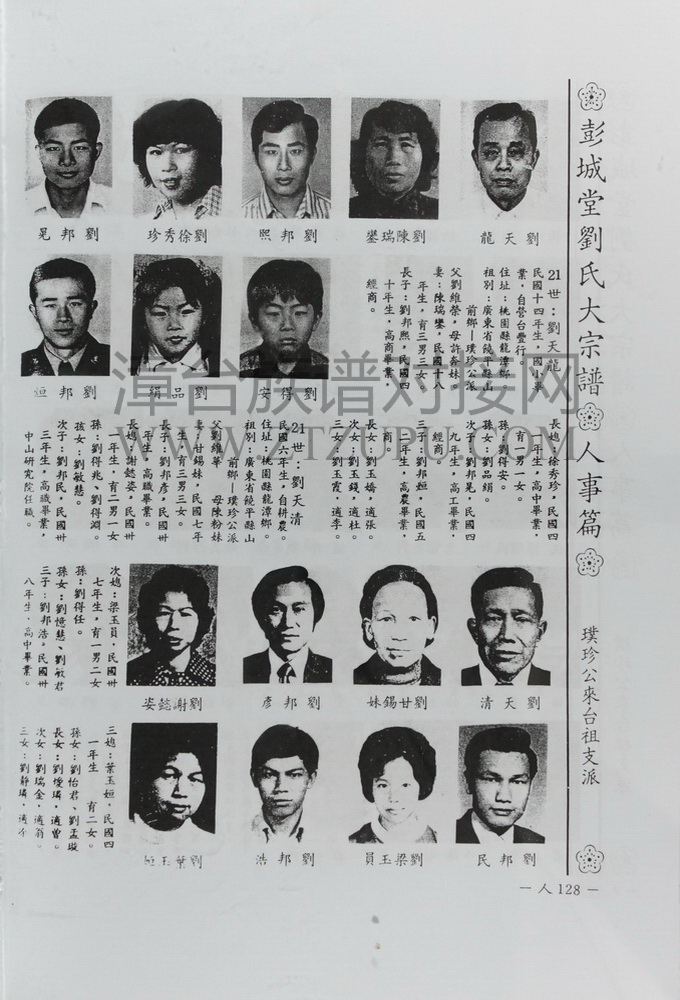 彭城堂劉氏大宗譜
人事篇
璞珍公來台祖支派
劉天龍
劉陳瑞鑾
劉邦熙
劉徐秀珍
劉邦晃
劉得安
劉品絹
劉邦烜
21世：劉天龍
民國十四年生，國小畢
業，自營台豐行。
住址：桃園縣龍潭鄉。
祖別：廣東省饒平縣山
前鄉—璞珍公派
父劉維榮，母許查妹。
妻：陳瑞鑾，民國十八
年生，育三男三女。
長子：劉邦熙，民國四
十年生，高商畢業，
經商。
長媳：徐秀珍，民國四
一年生，高中畢業，
育一男一女。
孫：劉得安。
孫女：劉品絹。
次子：劉邦晃，民國四
九年生，高工畢業，
經商。
三子：劉邦烜，民國五
二年生，高農畢業，
商。
長女：劉玉嬌，適張。
次女：劉玉錢，適杜。
三女：劉玉霞，適李。
21世：劉天清
民國六年生，自耕農。
住址：桃園縣龍潭鄉。
祖別：廣東省饒平縣山
前鄉—璞珍公派
父劉維華 母陳粉妹
妻：甘錫妹，民國七年
生，育三男三女。
長子：劉邦彥，民國卅
年生，高職畢業。
長媳：謝懿姿，民國卅
一年生，育二男一女
孫：劉得兆、劉得淵。
孫女：劉敏慧。
次子：劉邦民，民國卅
三年生，高職畢業，
中山研究院任職。
劉天清
劉甘錫妹
劉邦彥
劉謝懿姿
次媳：梁玉員，民國卅
七年生，育一男二女
孫：劉得任。
孫女：劉憶慧、劉敏君
三子：劉邦浩，民國卅
八年生，高中畢業。
劉邦民
劉梁玉員
劉邦浩
劉葉玉姮
三媳：葉玉姮，民國四
一年生 育二女。
孫女：劉怡君、劉孟璇
長女：劉瓊璘，適曾。
次女：劉瑞金，適翁。
三女：劉靜璘，適
—人128—
漳台族谱对接网
WWW.ZTZUPU.COM